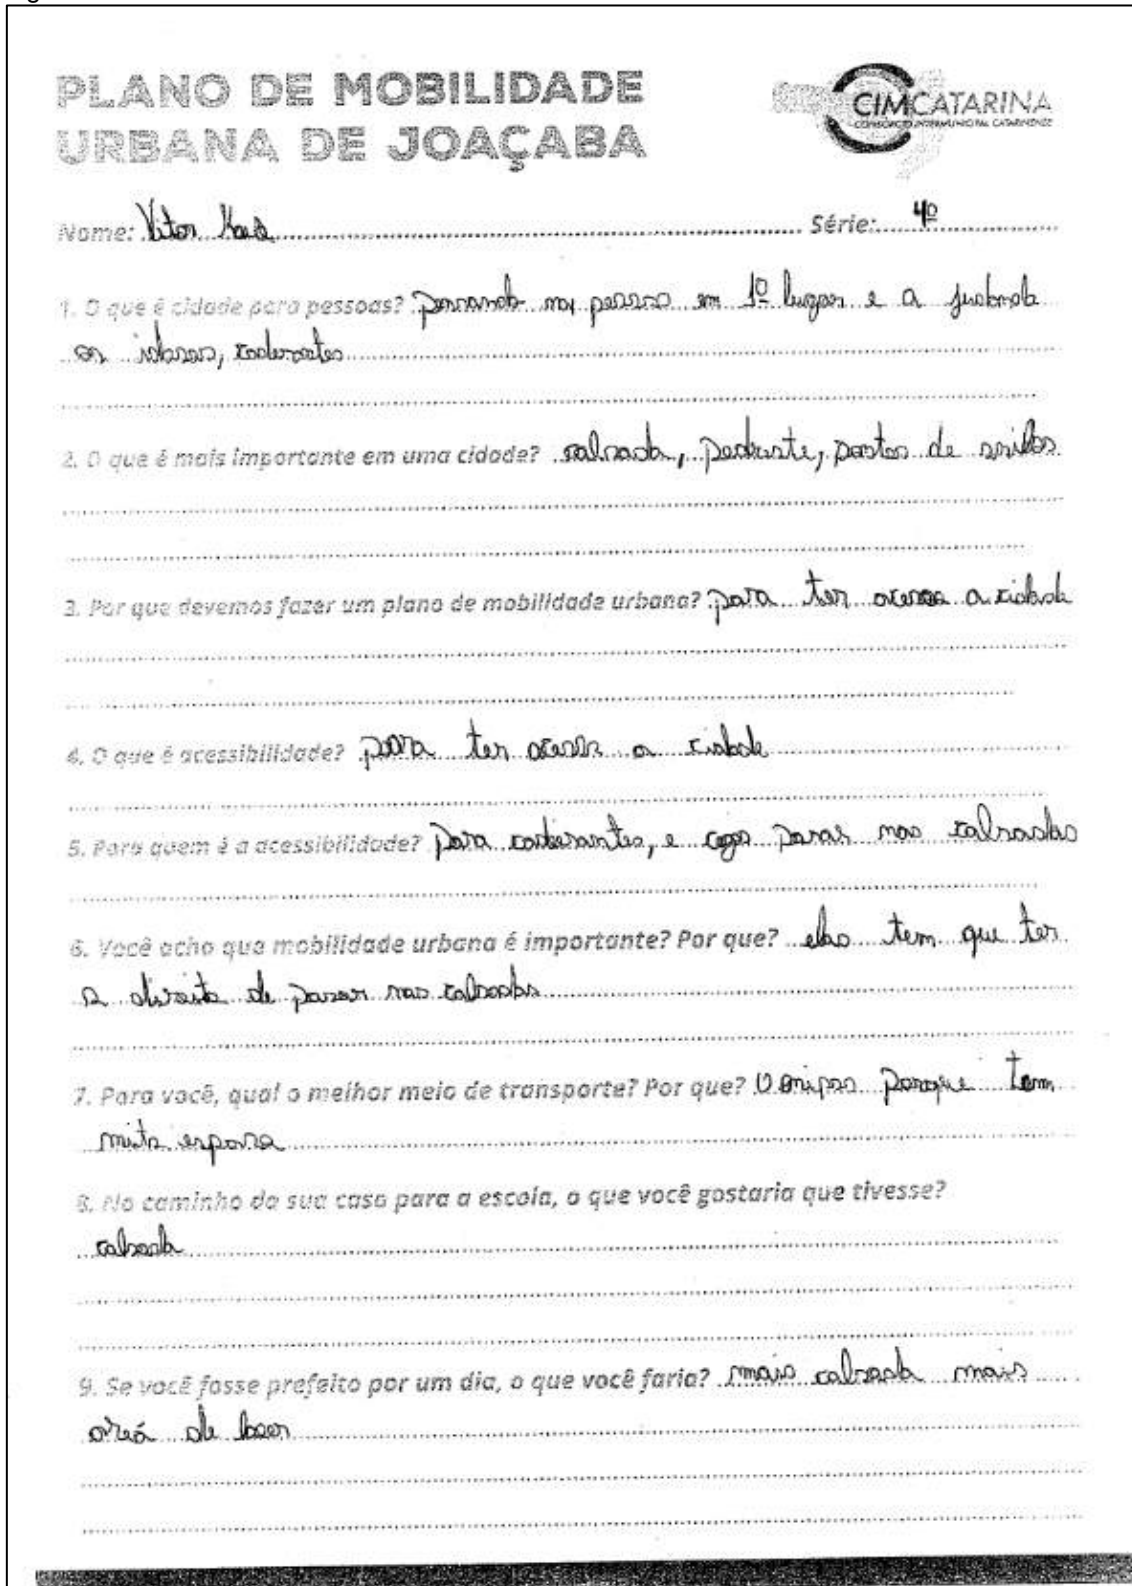 PLANO DE MOBILIDADE
URBANA DE JOAÇABA
CIMCATARINA
CONSÓRCIO INTERMUNICIPAL CATARINENSE
Nome: Vitor Série: 4º
1. O que é cidade para pessoas? pensando nas pessoas em 1º lugar e a judando
os idosos, caderantes
2. O que é mais importante em uma cidade? calsada, pedreste, postos de
3. Por que devemos fazer um plano de mobilidade urbana? para ter acesso a cidade
4. O que é acessibilidade? para ter acesso a cidade
5. Para quem é a acessibilidade? para caderantes, e cegos pasar nas calsadas
6. Você acha que mobilidade urbana é importante? Por que? elas tem que ter
o direito de pasar nas calsadas
7. Para você, qual o melhor meio de transporte? Por que? O onipos porque tem
muito
8. No caminho da sua casa para a escola, o que você gostaria que tivesse?
calsada
9. Se você fosse prefeito por um dia, o que você faria? mais calsada mais
areá de laser